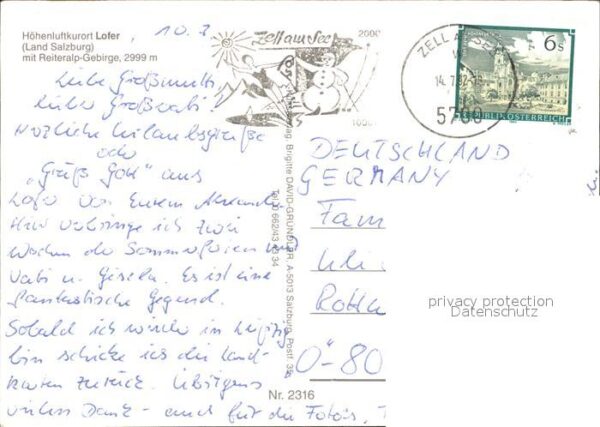 Höhenluftkurort Lofer
(Land Salzburg)
mit Reiteralp-Gebirge, 2999 m
10. 7.
Zell am See
2000
ZELL AM SEE
14. 7. 92
5700
6 S
REPUBLIK ÖSTERREICH
Liebe Großmutti,
lieber Großvati!
Herzliche Urlaubsgrüße
oder
„Grüß Gott“ aus
Lofer von Eurem Alexander.
Hier verbringe ich zwei
Wochen der Sommerferien mit
Vati u. Gisela. Es ist eine
fantastische Gegend.
Sobald ich wieder in Leipzig
bin schicke ich die Land-
karten zurück. Übrigens
vielen Dank - auch für die Foto's,
Verlag Brigitte DAVID-GRÜNDLER, A-5013 Salzburg, Postf. 35,
Tel. 0 662/43 43 34
DEUTSCHLAND
GERMANY
Fam
Ö-80
Nr. 2316
privacy protection
Datenschutz